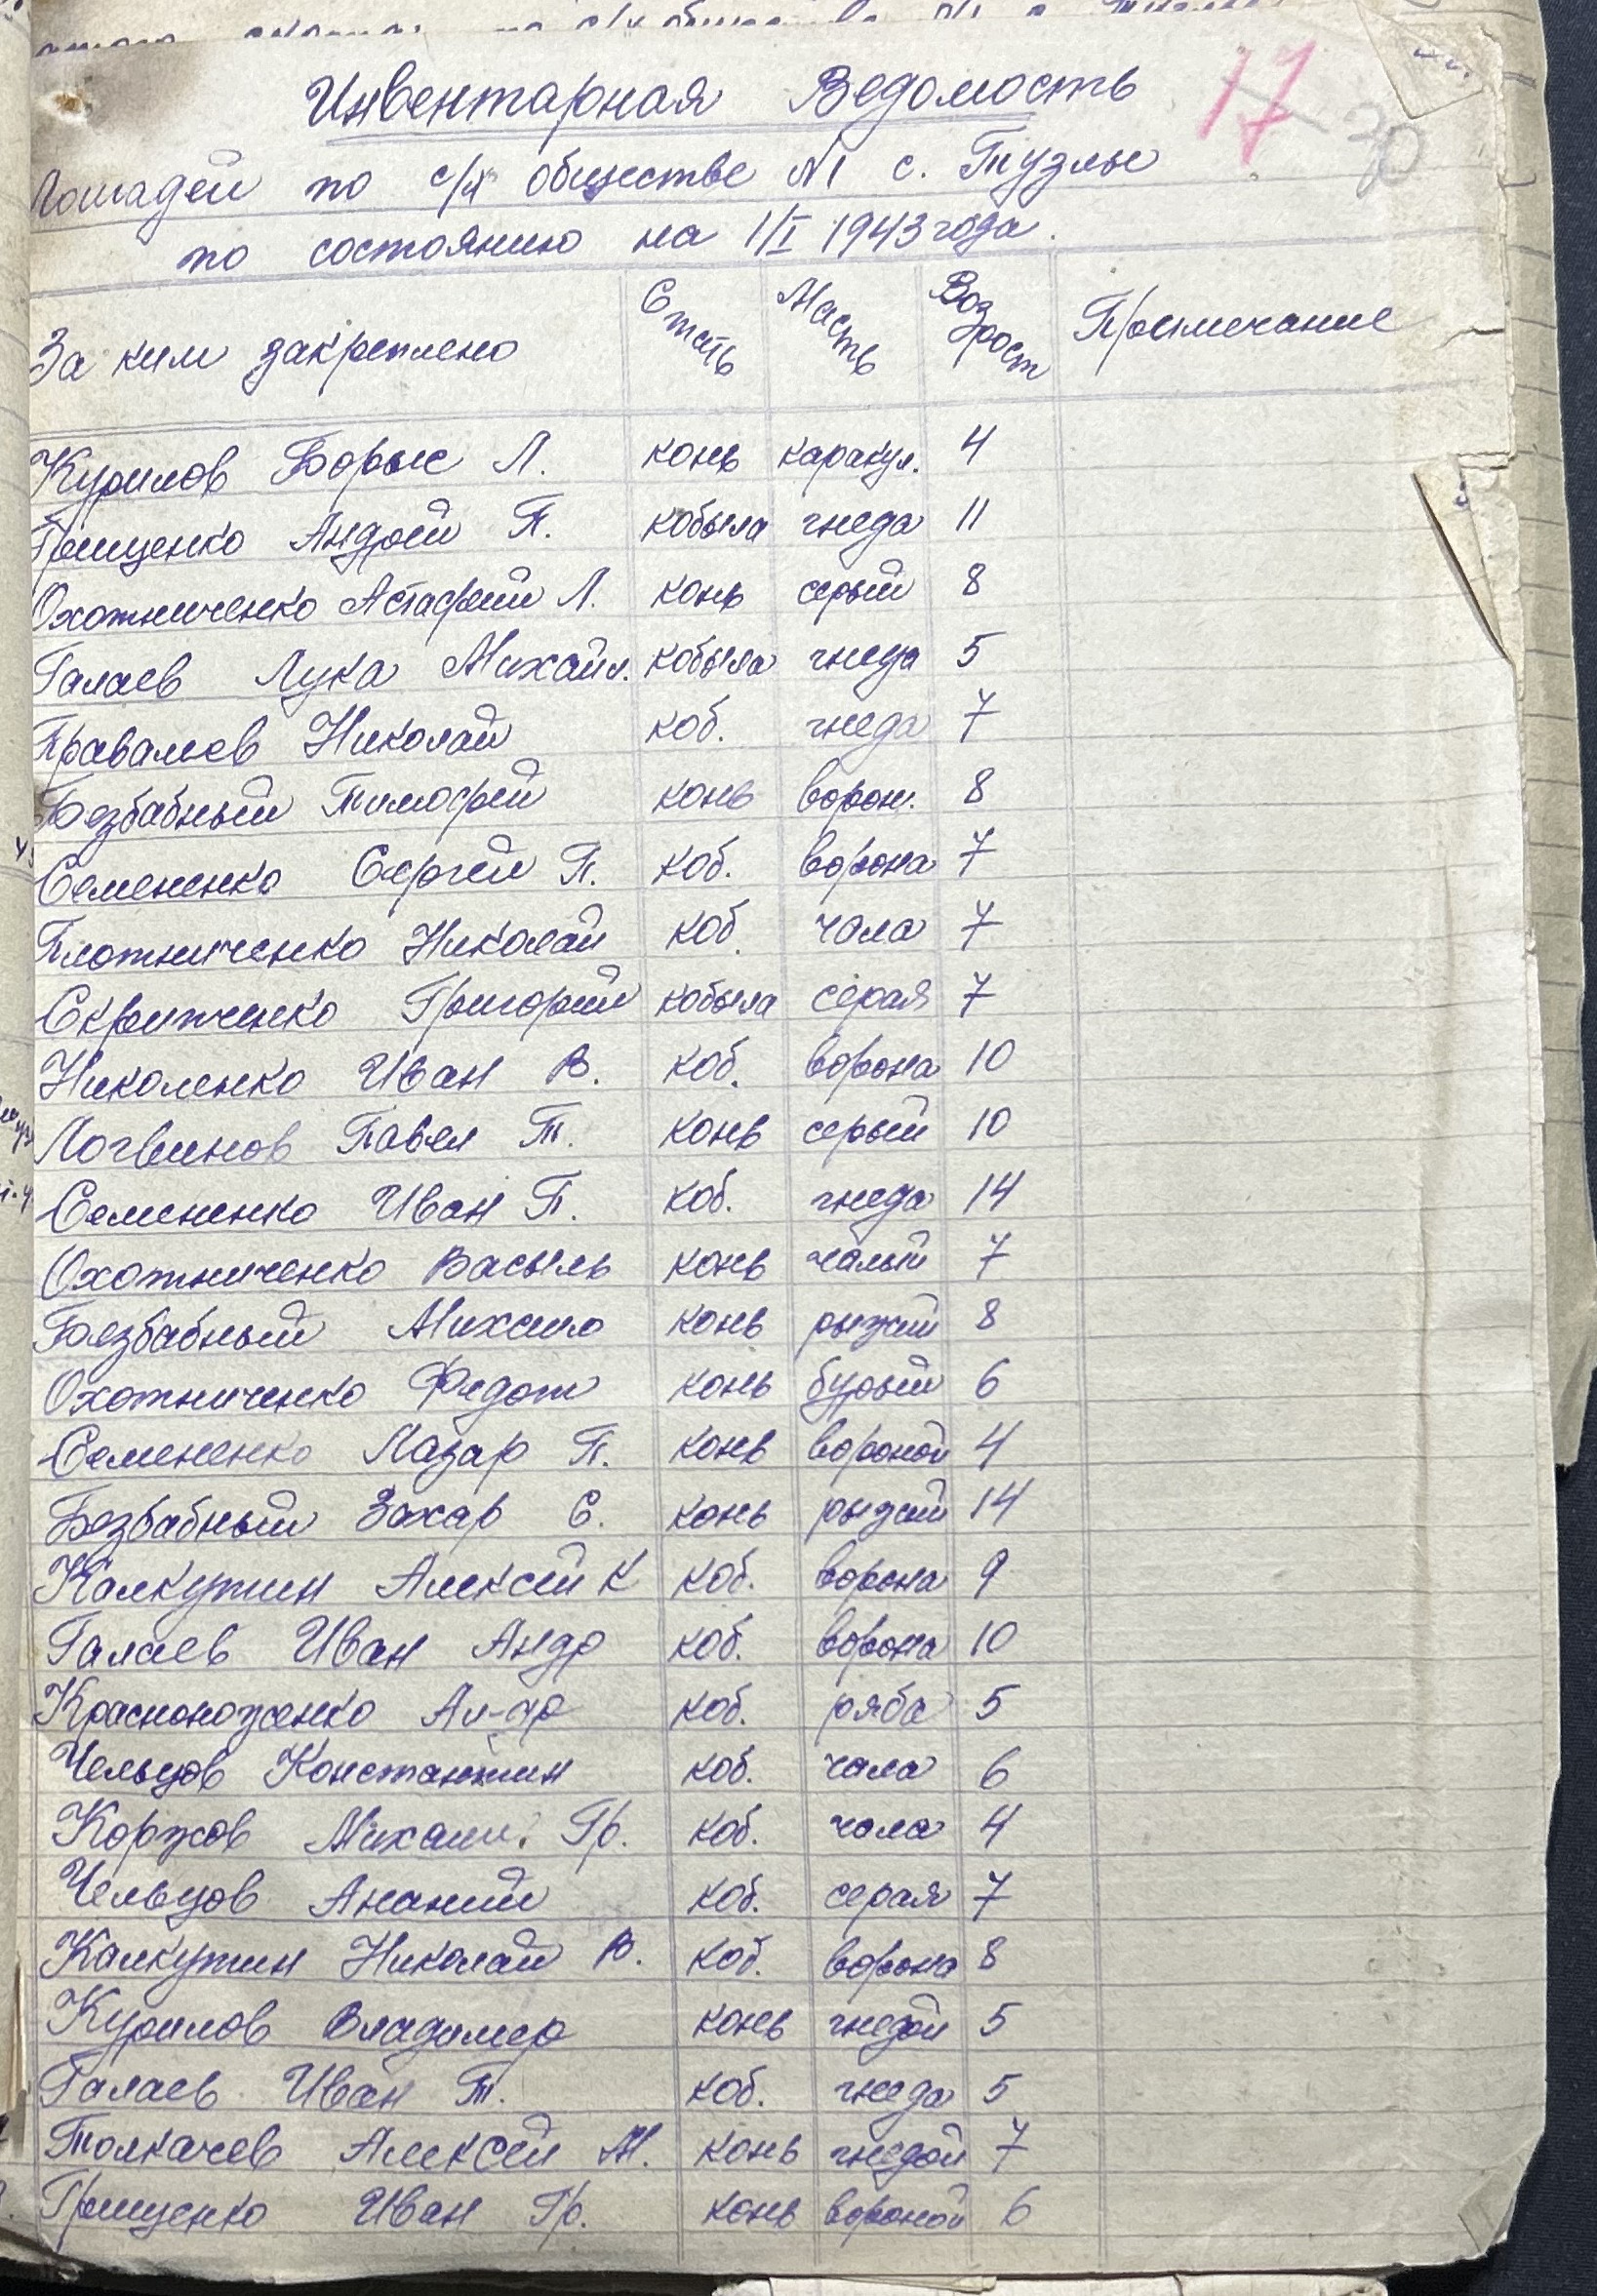 17
30
Инвентарная Ведомость
Лошадей по с/х обществе №1 с. Тузлы
по состоянию на 1/I 1943 года.
За ким закреплено Стать Масть Возрост Примечание
Курилов Борыс Л. конь каракул. 4
Грищенко Андрей П. кобыла гнеда 11
Охотниченко Астафий Л. конь серый 8
Галаев Лука Михайл. кобыла гнеда 5
Правалов Николай коб. гнеда 7
Безбабный Тимофей конь ворон. 8
Семененко Сергей П. коб. ворона 7
Плотниченко Николай коб. чала 7
Скрипченко Григорий кобыла серая 7
Николенко Иван В. коб. ворона 10
Логвинов Павел Т. конь серый 10
Семененко Иван П. коб. гнеда 14
Охотниченко Васыль конь чалый 7
Безбабный Михаил конь рыжий 8
Охотниченко Федот конь бурый 6
Семененко Лазар П. конь вороной 4
Безбабный Захар С. конь рыжий 14
Калкутин Алексей К коб. ворона 9
Галаев Иван Андр коб. ворона 10
Красноноженко Ал-др коб. ряба 5
Чельцов Константин коб. чала 6
Коржов Михаил. Гр. коб. чала 4
Чельцов Ананий коб. серая 7
Калкутин Николай В. коб. ворона 8
Курилов Владимер конь гнедой 5
Галаев Иван Т. коб. гнеда 5
Толкачев Алексей М. конь гнедой 7
Грищенко Иван Гр. конь вороной 6